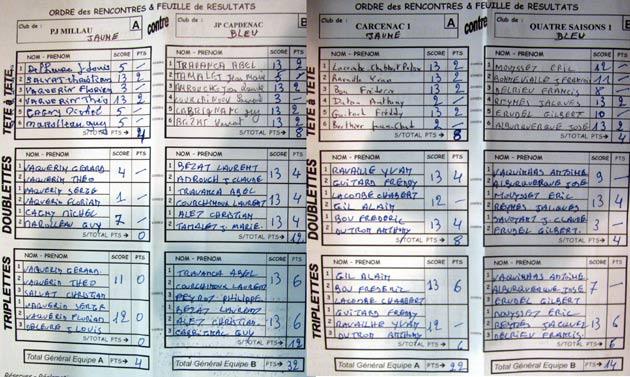 ORDRE des RENCONTRES & FEUILLE de RESULTATS
Club de : PJ MILLAU A
JAUNE
contre
Club de : JP CAPDENAC B
BLEU
TETE à TETE
NOM - PRENOM SCORE PTS
1 5 -
2 SALVAT 13 2
3 VAQUERIN Florian 3 -
4 VAQUERIN Théo 13 2
5 -
6 5 -
S/TOTAL PTS→ 4
NOM - PRENOM SCORE PTS
1 TRAVANCA ABEL 13 2
2 TAMALET 5 -
3 13 2
4 3 -
5 GUY 13 2
6 13 2
S/TOTAL PTS→ 8
DOUBLETTES
NOM - PRENOM SCORE PTS
VAQUERIN GERARD
VAQUERIN THEO 4 -
VAQUERIN SERGE
VAQUERIN FLORIAN 1 -
CAGNY MICHEL
MAROLLEAU GUY 7 -
S/TOTAL PTS→ 0
NOM - PRENOM SCORE PTS
BEZAT LAURENT
J.CLAUDE 13 4
TRAVANCA ABEL
COURCHINOUX LAURENT 13 4
ALET CHRISTIAN
TAMALET J. MARIE 13 4
S/TOTAL PTS→ 12
TRIPLETTES
NOM - PRENOM SCORE PTS
VAQUERIN GERARD
VAQUERIN THEO 11 0
SALVAT CHRISTIAN
VAQUERIN SERGE
VAQUERIN FLORIAN 12 0
J. LOUIS
S/TOTAL PTS→ 0
NOM - PRENOM SCORE PTS
TRAVANCA ABEL
COURCHINOUX LAURENT 13 6
PEYROT PHILIPPE
BEZAT LAURENT
ALET CHRISTIAN 13 6
GUY
S/TOTAL PTS→ 12
Total Général Equipe A PTS→ 4
Total Général Equipe B PTS→ 32
ORDRE des RENCONTRES & FEUILLE de RESULTATS
Club de : CARCENAC 1 A
JAUNE
contre
Club de : QUATRE SAISONS 1 B
BLEU
TETE à TETE
NOM - PRENOM SCORE PTS
1 Lacombe Chabbert 13 2
2 Yvan 13 2
3 Bou Frédéric 13 2
4 Anthony 2 -
5 Guitard Freddy 13 2
6 12 -
S/TOTAL PTS→ 8
NOM - PRENOM SCORE PTS
1 MOYSSET ERIC 12 -
2 BONNEVIALLE 11 -
3 DELRIEU FRANCIS 8 -
4 REYMES JACQUES 13 2
5 ERUDEL GILBERT 10 -
6 ALBUQUERQUE JOSE 13 2
S/TOTAL PTS→ 4
DOUBLETTES
NOM - PRENOM SCORE PTS
RAVAILLE YVAN
GUITARD FREDDY 13 4
LACOMBE CHABBERT
GIL ALAIN 12 -
BOU FREDERIC
DUTRON ANTHONY 13 4
S/TOTAL PTS→ 8
NOM - PRENOM SCORE PTS
VAQUINHAS ANTOINE
ALBUQUERQUE JOSE 9 -
MOYSSET ERIC
REYMES JACQUES 13 4
J. CLAUDE
ERUDEL GILBERT 3 -
S/TOTAL PTS→ 4
TRIPLETTES
NOM - PRENOM SCORE PTS
GIL ALAIN
BOU FREDERIC 13 6
LACOMBE CHABBERT
GUITARD FREDDY
RAVAILHE YVAN 12 -
DUTRON ANTHONY
S/TOTAL PTS→ 6
NOM - PRENOM SCORE PTS
VAQUINHAS ANTOINE
ALBUQUERQUE JOSE 7 -
ERUDEL GILBERT
MOYSSET ERIC
REYMES JACQUES 13 6
DELRIEU FRANCIS
S/TOTAL PTS→ 6
Total Général Equipe A PTS→ 22
Total Général Equipe B PTS→ 14